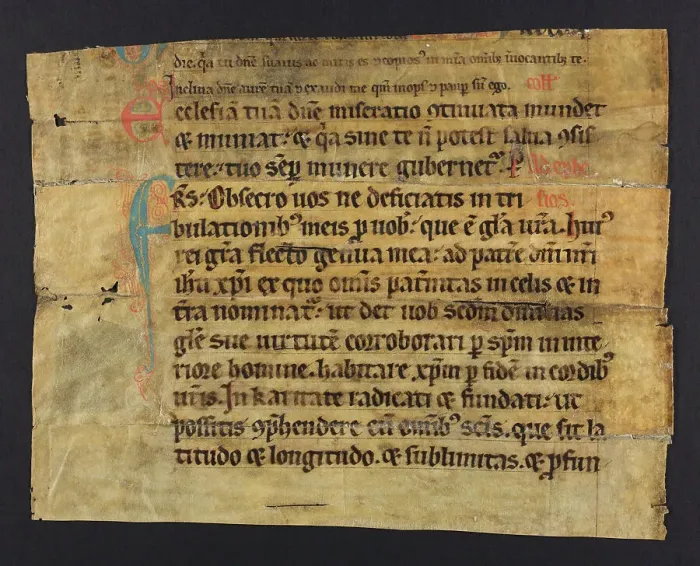 die. q̃a tu dñe suauis ac mitis es ⁊ copios' in mĩa omĩbꝫ inuocantibꝫ te.
Inclina dñe aurẽ tuã ⁊ exaudi me qm̃ inops ⁊ paup sũ ego. coll̃
Ecclesiã tuã dñe miseratio ꝯtinuata mundet
& muniat. & q̃a sine te ñ potest salua ꝯsis
tere. tuo sẽp munere gubernet᷑. Ad ephe
Fr̃s. Obsecro uos ne deficiatis in tri sios.
bulationibꝰ meis ꝓ uob̃. que ẽ gl̃a ur̃a. huiꝰ
rei gr̃a flecto genua mea. ad patrẽ dñi nr̃i
ihũ xp̃i ex quo om̃is pat̃nitas in celis & in
t̃ra nominat᷑. ut det uob̃ scd̃m diuitias
gl̃e sue uirtutẽ corroborari ꝑ sp̃m in inte
riore homine. habitare xp̃m ꝑ fidẽ in cordibꝰ
ur̃is. In karitate radicati & fundati. ut
possitis ꝯp̃hendere cũ om̃ibꝰ sc̃is. que sit la
titudo & longitudo. & sublimitas. & ꝓfun